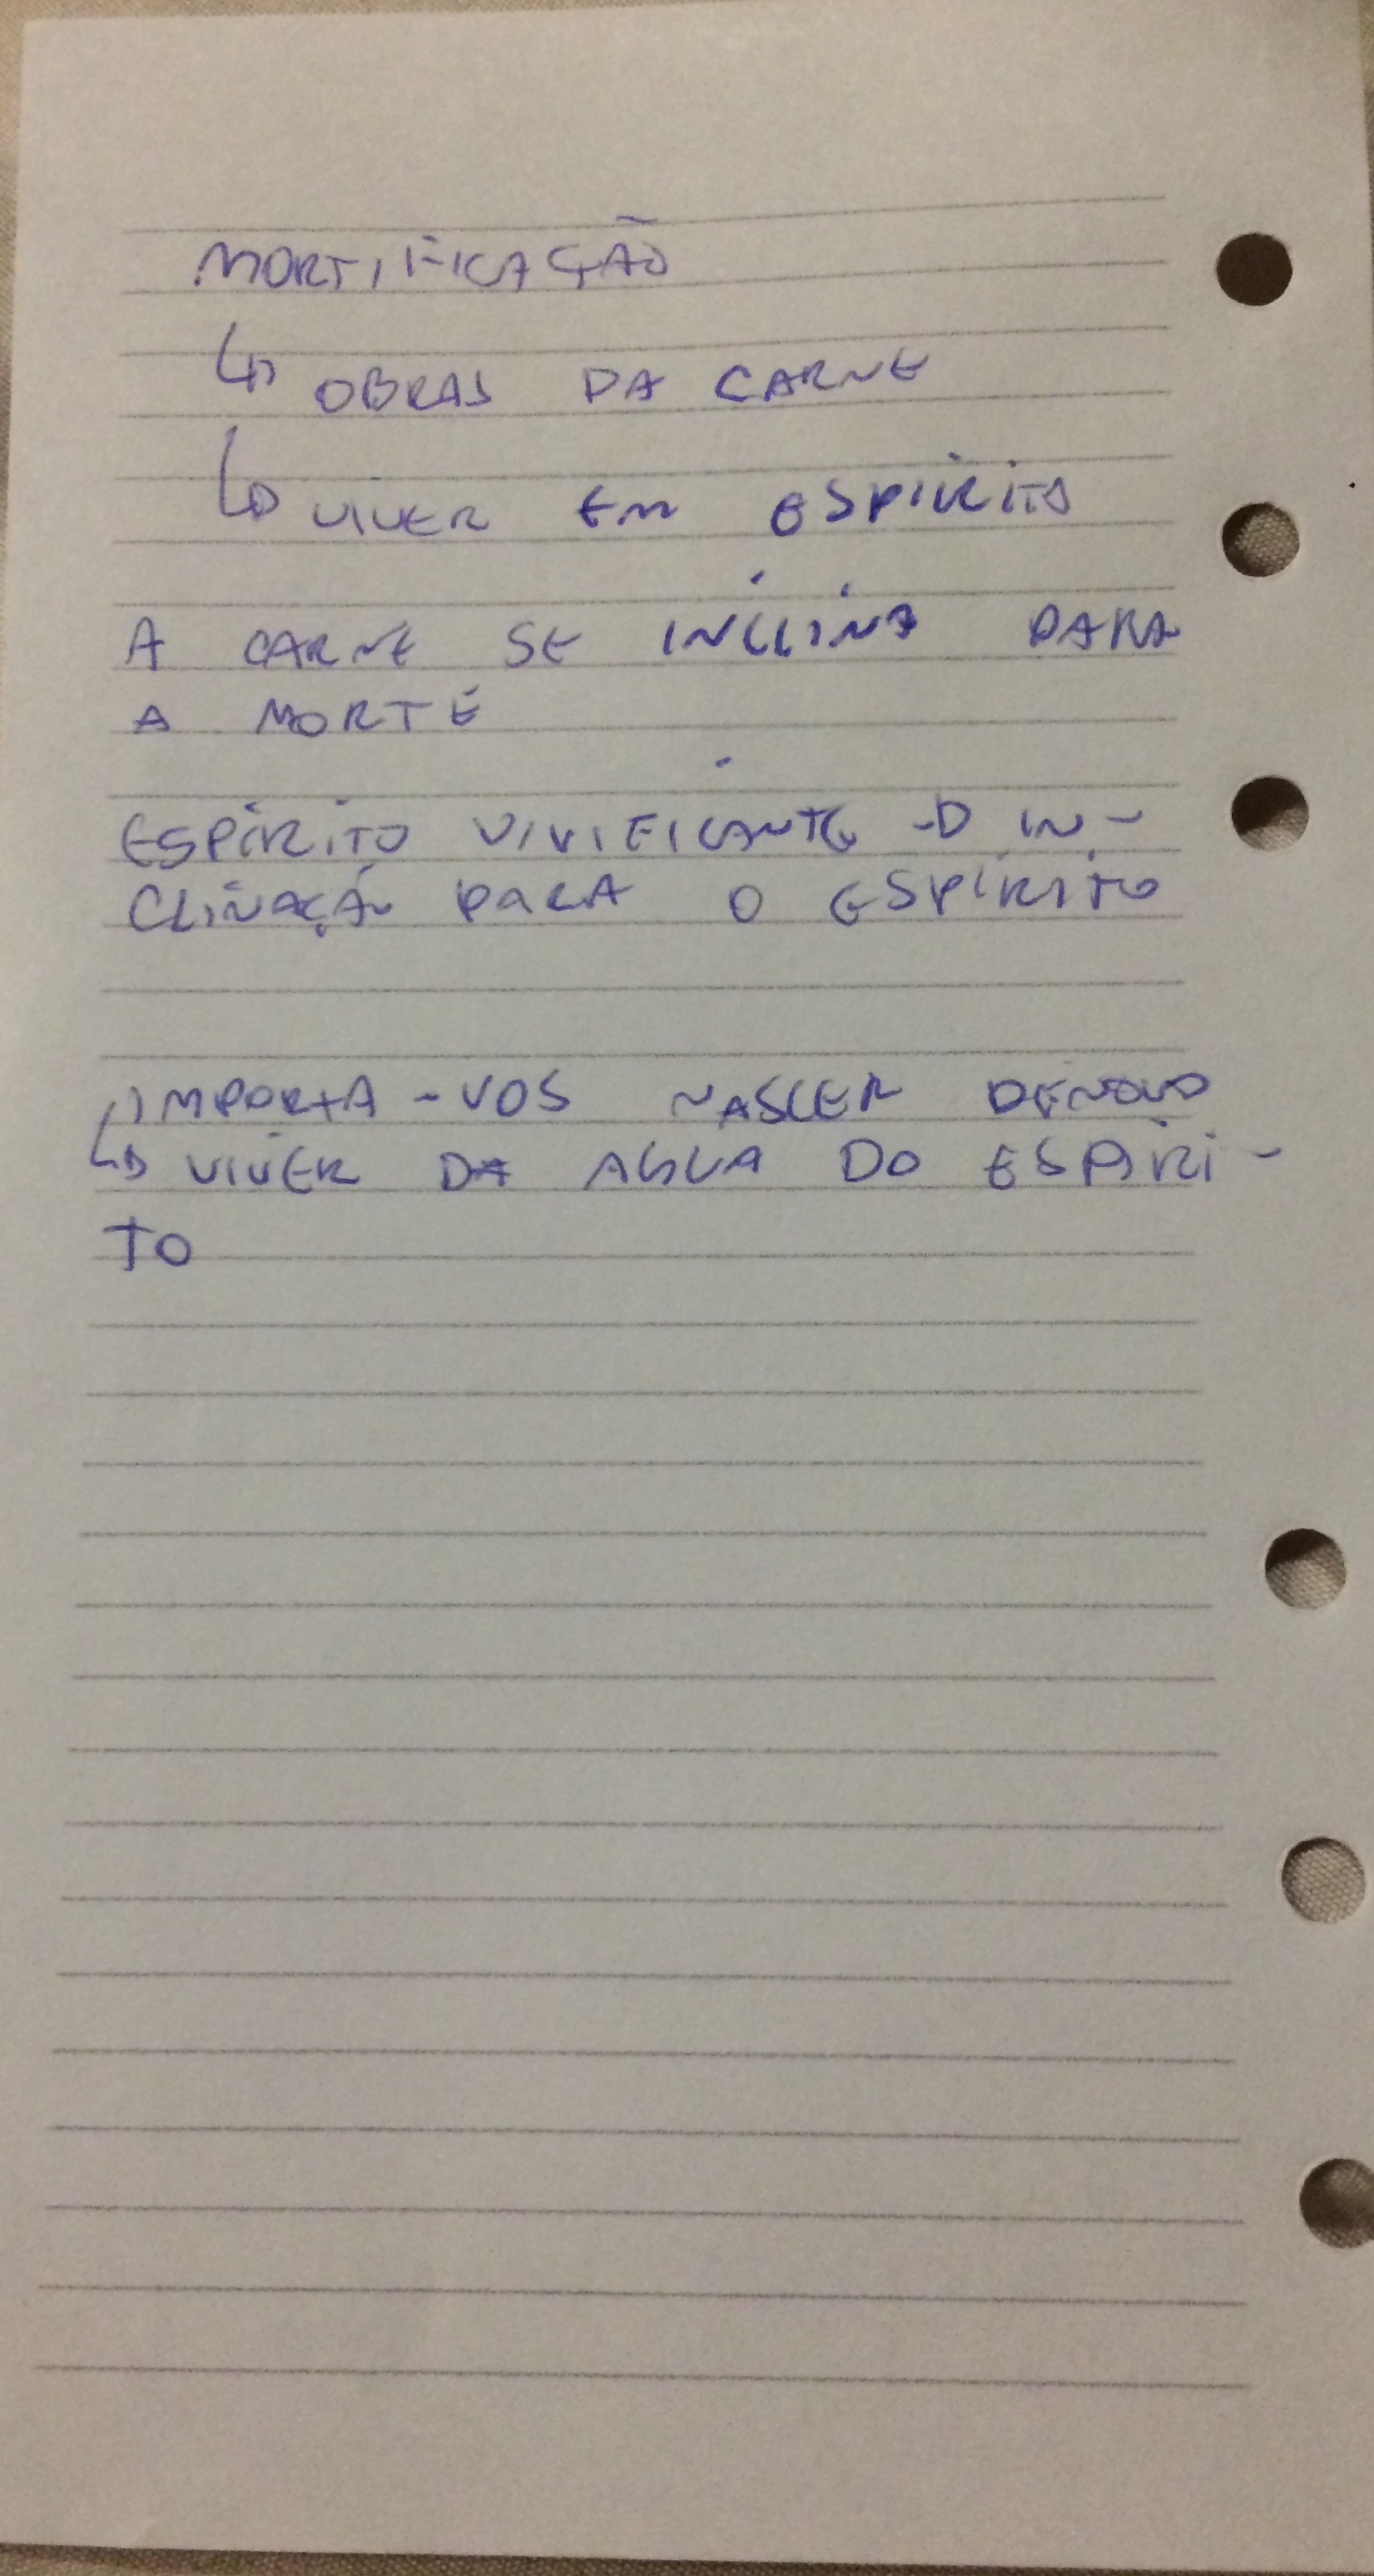 MORTIFICAÇÃO
↳ OBRAS DA CARNE
↳ VIVER EM ESPÍRITO
A CARNE SE INCLINA PARA
A MORTE
ESPÍRITO VIVIFICANTE → IN-
CLINAÇÃO PARA O ESPÍRITO
IMPORTA-VOS NASCER DENOVO
↳ VIVER DA AGUA DO ESPÍRI-
TO